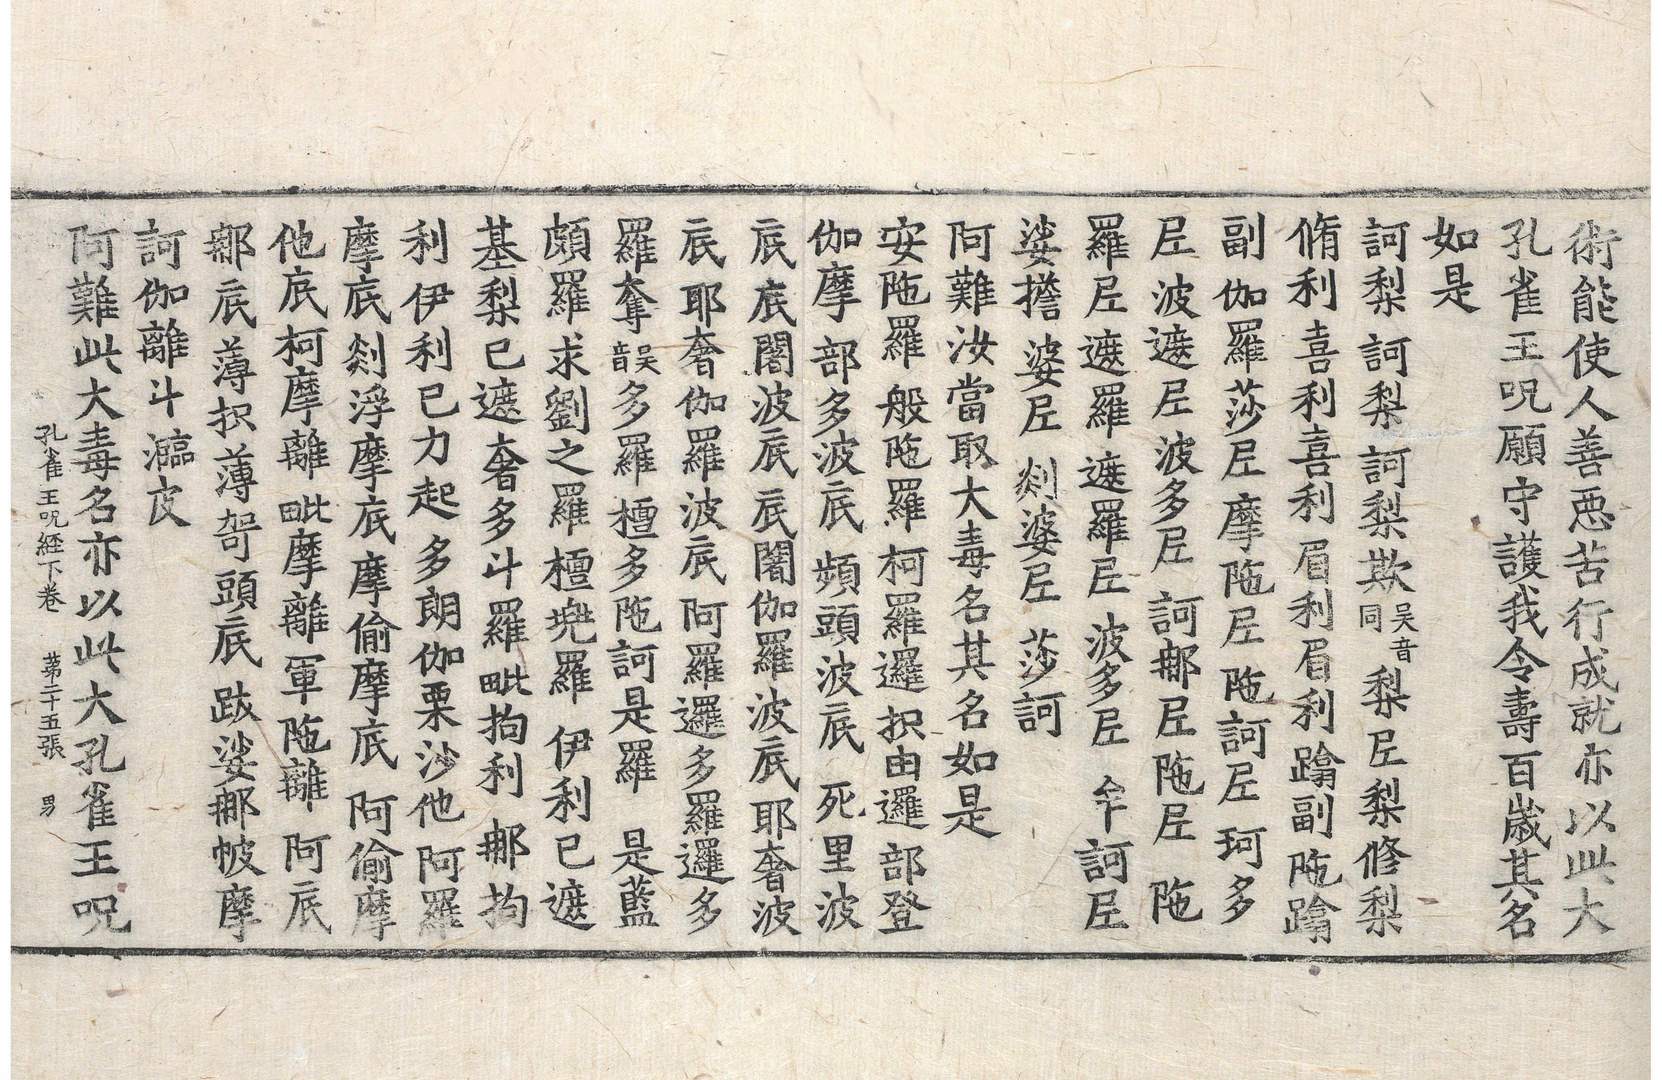 術能使人善惡苦行成就亦以此大
孔雀王呪願守護我令壽百歲其名
如是
訶梨 訶梨 訶梨欺吳音同 梨𡰱梨修梨
脩利 喜利喜利 眉利眉利 蹹副陁蹹
副 伽羅莎𡰱摩陁𡰱 陁訶𡰱 珂多
𡰱 波遮𡰱 波多𡰱 訶𨚗𡰱陁𡰱 陁
羅𡰱 遮羅遮羅𡰱 波多𡰱 牟訶𡰱
婆𢶍婆𡰱 剡婆𡰱 莎訶
阿難汝當取大毒名其名如是
安陁羅 般陁羅 柯羅邏 抧由邏 部登
伽摩 部多波底 頻頭波底 死里波
底 底闍波底 底闍伽羅波底耶奢波
底 耶奢伽羅波底 阿羅邏多羅邏多
羅奪吳音多羅 檀多陁訶是羅 是藍
頗羅求劉之羅 檀兜羅 伊利已遮
基梨已遮 奢多斗羅 毗拘利 𨚗拘
利 伊利已力起 多朗伽栗沙他 阿羅
摩底 剡浮摩底 摩偷摩底 阿偷摩
他底 柯摩離 毗摩離 軍陁離 阿底
𨚗底 薄抧薄 㧙頭底 跋娑𨚗帔摩
訶伽離斗 㵢皮
阿難此大毒名亦以此大孔雀王呪
孔雀王呪経下巻 苐二十五張 男